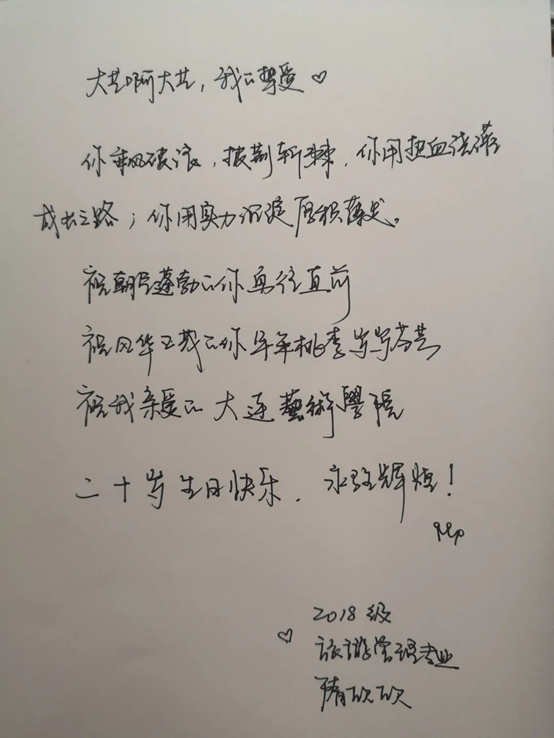 大艺啊大艺，我的挚爱♡
你乘风破浪，披荆斩棘，你用热血浇灌
成长之路；你用实力沉淀厚积薄发。
祝朝气蓬勃的你勇往直前
祝风华正茂的你年年桃李 岁岁芬芳
祝我亲爱的 大连藝術學院
二十岁生日快乐，永铸辉煌！
♡ 2018级
旅游管理专业
隋欣欣